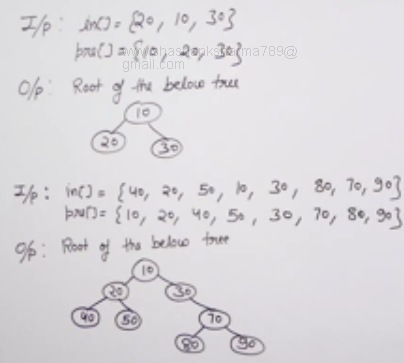 I/p: in[] = {20, 10, 30}
pre[] = {10, 20, 30}
O/p: Root of the below tree
10
20 30
I/p: in[] = {40, 20, 50, 10, 30, 80, 70, 90}
pre[] = {10, 20, 40, 50, 30, 70, 80, 90}
O/p: Root of the below tree
10
20 30
40 50 70
80 90